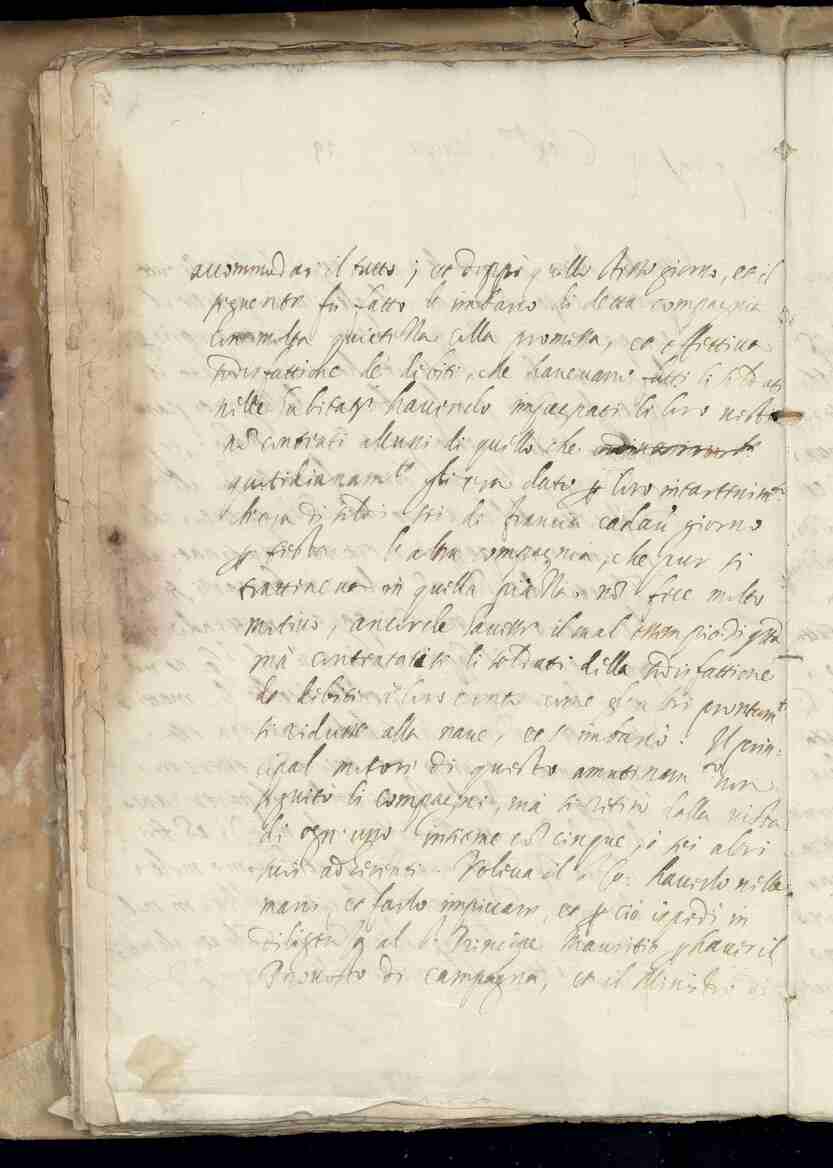 accommodar il tutto; et doppo quello stesso giorno, et il
seguente fu fatto l'imbarco di detta compagnia
con molta quietezza colla promessa, et effettiva
sodisfattione de debiti, che havevano tutti li soldati
nelle havendo impegnati li loro vestiti
nõ contenti alcuni di quello che
quotidianam.te gli era dato p loro intartenim.to
ch'era di soldi sei di Francia cadaũ giorno
p testa l'altra compagnia, che pur si
trattineva in quella piazza nõ fece molto
motivo, ancorche havesse il mal essempio di q̃sta
mà contentatisi li soldati della sodisfattione
de debiti à loro conto come gl'altri prontam.te
si ridusse alla nave, et s'imbarcò. Il prin-
cipal motore di questo amutinam.to non
seguitò li compagni, mà si ritirò dalla vista
di ogn'uno insieme cõ cinque, ò sei altri
suoi adherenti. Voleva il haverlo nelle
mani, et farlo impiccare, et p ciò ispedì in
diligenza al S.r Principe Mauritio p haver il
Prevosto di campagna, et il Ministro di